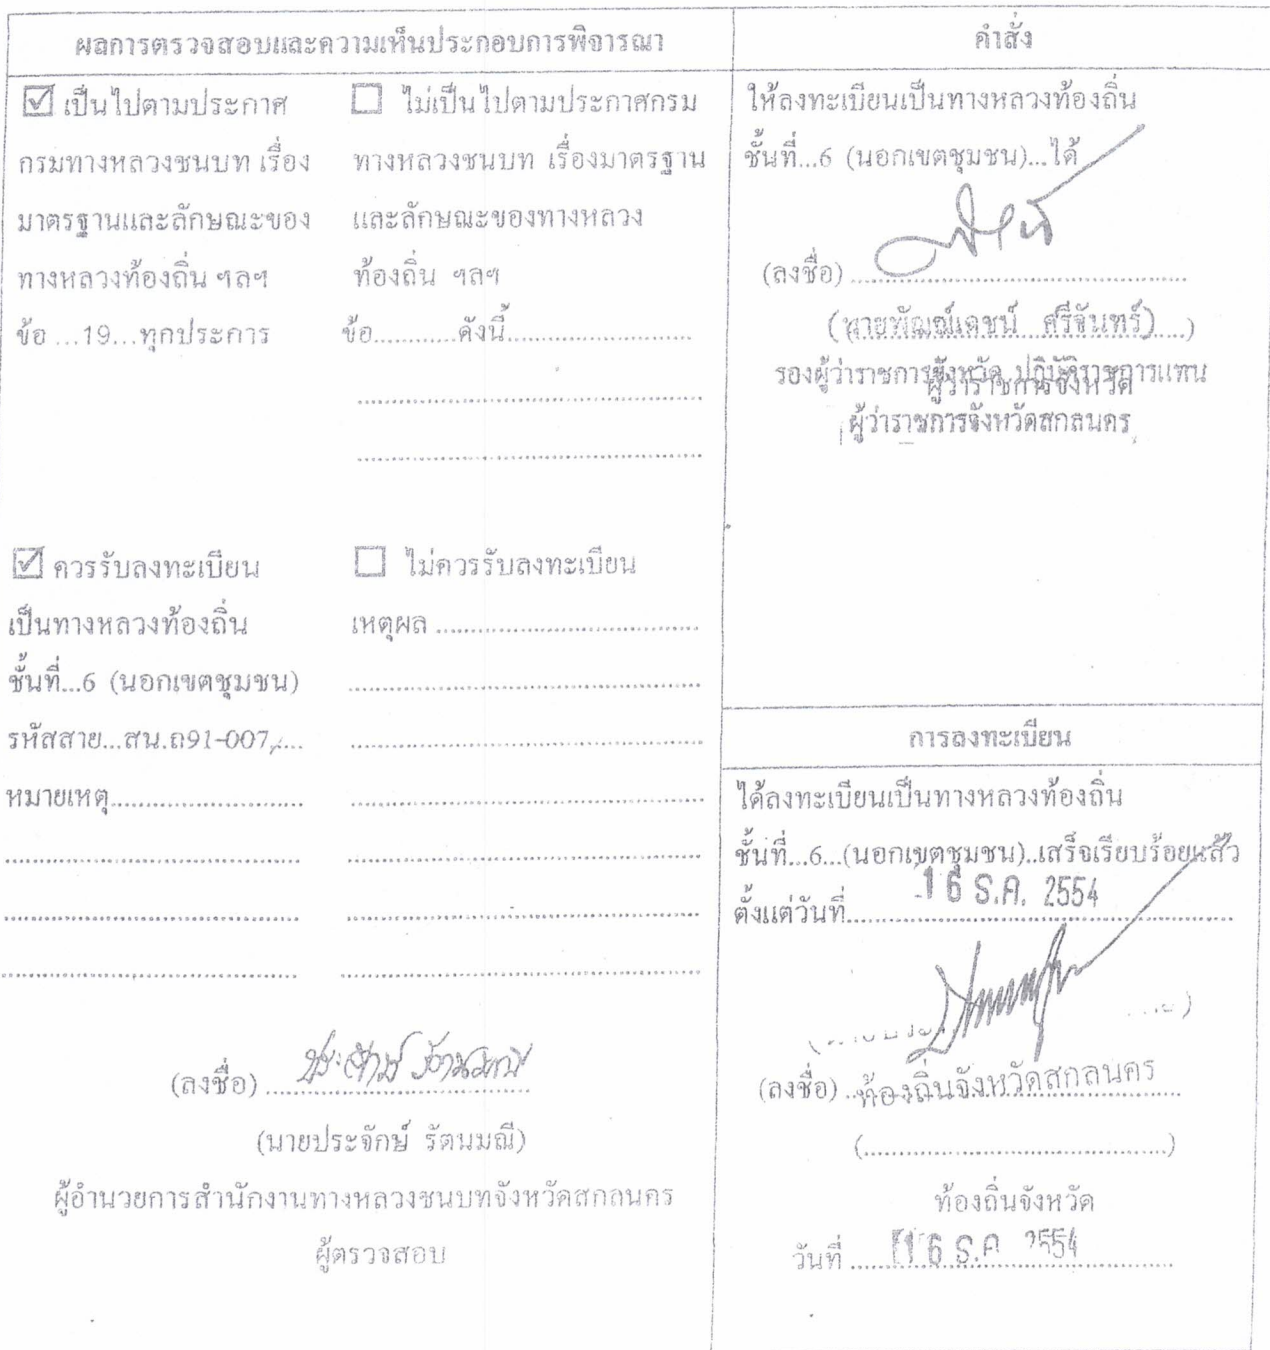 ผลการตรวจสอบและความเห็นประกอบการพิจารณา
☑ เป็นไปตามประกาศ
กรมทางหลวงชนบท เรื่อง
มาตรฐานและลักษณะของ
ทางหลวงท้องถิ่น ฯลฯ
ข้อ ...19...ทุกประการ
☐ ไม่เป็นไปตามประกาศกรม
ทางหลวงชนบท เรื่องมาตรฐาน
และลักษณะของทางหลวง
ท้องถิ่น ฯลฯ
ข้อ............ดังนี้........................
☑ ควรรับลงทะเบียน
เป็นทางหลวงท้องถิ่น
ชั้นที่...6 (นอกเขตชุมชน)
รหัสสาย...สน.ถ91-007,...
หมายเหตุ.........................
☐ ไม่ควรรับลงทะเบียน
เหตุผล ..................................
(ลงชื่อ) ประจักษ์ รัตนมณี
(นายประจักษ์ รัตนมณี)
ผู้อำนวยการสำนักงานทางหลวงชนบทจังหวัดสกลนคร
ผู้ตรวจสอบ
คำสั่ง
ให้ลงทะเบียนเป็นทางหลวงท้องถิ่น
ชั้นที่...6 (นอกเขตชุมชน)...ได้
(ลงชื่อ) ..........................................
(นายพัฒฒ์เดชน์ ศรีจันทร์)
รองผู้ว่าราชการจังหวัด ปฏิบัติราชการแทน
ผู้ว่าราชการจังหวัด
ผู้ว่าราชการจังหวัดสกลนคร
การลงทะเบียน
ได้ลงทะเบียนเป็นทางหลวงท้องถิ่น
ชั้นที่...6...(นอกเขตชุมชน)..เสร็จเรียบร้อยแล้ว
ตั้งแต่วันที่ 16 ธ.ค. 2554
(ลงชื่อ) ท้องถิ่นจังหวัดสกลนคร
(.......................................)
ท้องถิ่นจังหวัด
วันที่ 16 ธ.ค. 2554